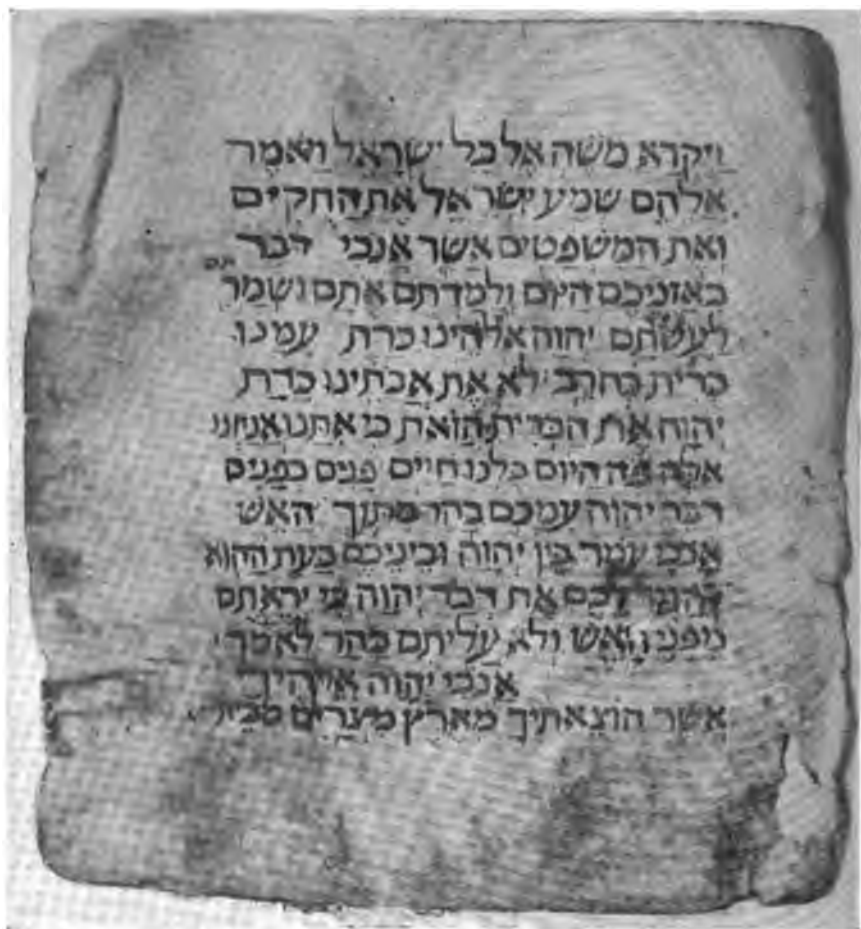 ויקרא משה אל כל ישראל ויאמר
אלהם שמע ישראל את החקים
ואת המשפטים אשר אנכי דבר
באזניכם היום ולמדתם אתם ושמרתם
לעשתם יהוה אלהינו כרת עמנו
ברית בחרב לא את אבתינו כרת
יהוה את הברית הזאת כי אתנו אנחנו
אלה פה היום כלנו חיים פנים בפנים
דבר יהוה עמכם בהר מתוך האש
אנכי עמד בין יהוה וביניכם בעת ההוא
להגיד לכם את דבר יהוה כי יראתם
מפני האש ולא עליתם בהר לאמר
אנכי יהוה אלהיך
אשר הוצאתיך מארץ מצרים מבית